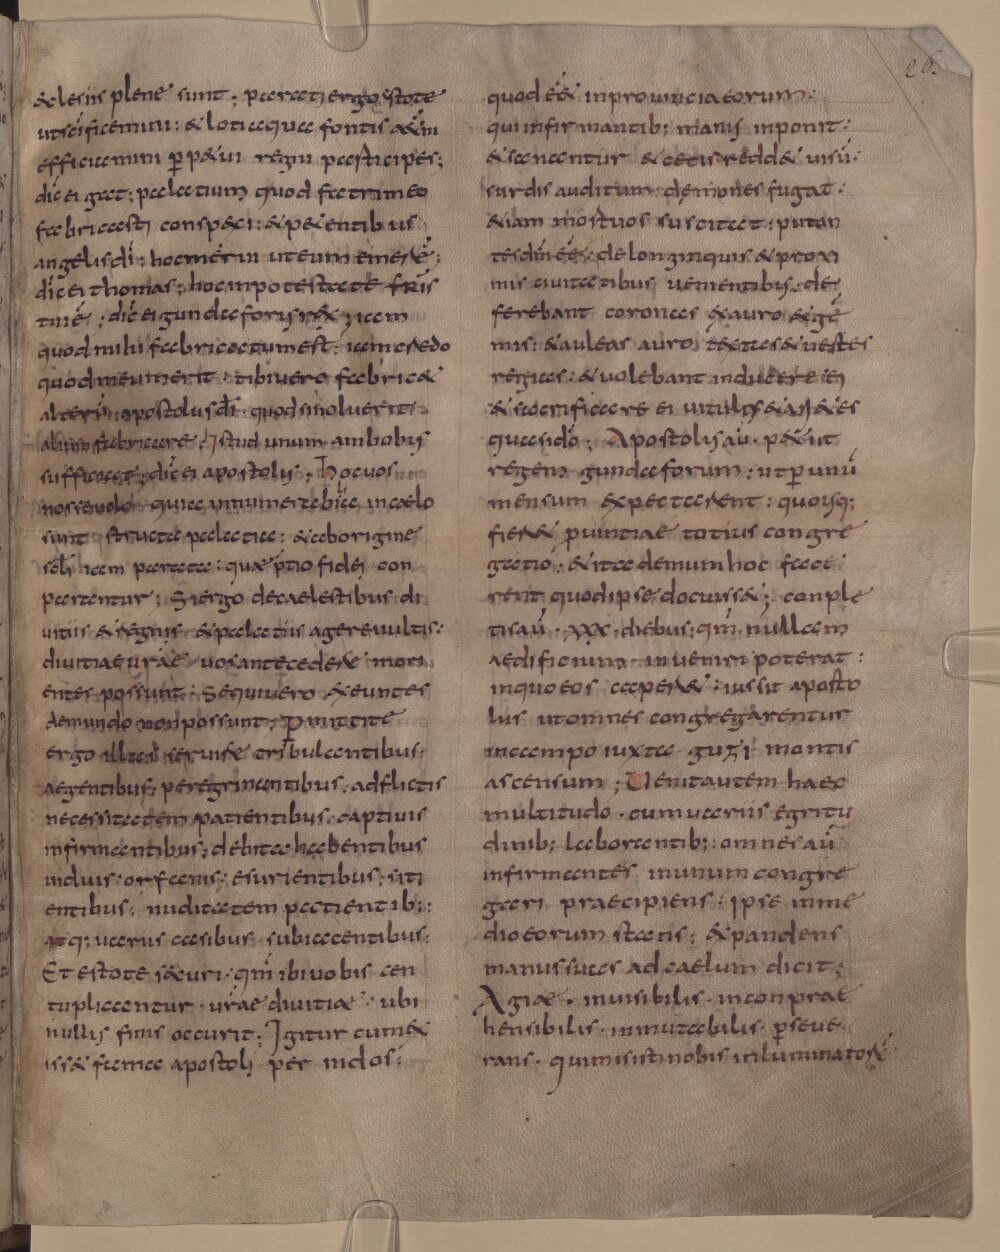 26.
&clesiis plene sunt; parati ergo stote
ut scificemini: & lotaque fontis aq̄m
efficiamini p̄p&ui regni participes;
dic̄ ei gad; palatium quod fratri meo
fabricasti conspexi: & p&entibus
angelis dī; hoc mēr̄ui ut eum emere;
dic̄ ei thomas; hoc in potestate fr̄is
tui ē; dic̄ ei gundaforus rex; iam
quod mihi fabricatum est: iam credo
quod meum erit. tibi uero fabric&
alterū apostolus dī. quod si noluerit
alium fabricare. Istud unum ambobus
sufficiat; dic̄ ei apostolus; Hoc uos
nosse uolo. quia innumerabilia in caelo
sunt structa palatia: & ab origine
sc̄li iam parata: quae p̄tio fidei con
parentur; Si ergo de caelestibus di
uitiis & regnis & palatiis agere uultis:
diuitiae ur̄ae uos antecedere mori
entes possunt: Sequi uero exeuntes
de mundo non possunt; Dimittite
ergo illas seruire tribulantibus.
aegentibus; peregrinantibus. adflictis
necessitatem patientibus. captiuis
infirmantibus; debita habentibus
uiduis. orfanis: esurientibus; siti
entibus. nuditatem patientib;:
atq; uariis casibus. subiacentibus:
Et estote securi. qm̄ ibi uobis cen
tuplicantur. ur̄ae diuitiae. ubi
nullus finis occurit; Igitur cum ex
iss& fama apostoli per indos:
quod ē& in prouincia eorum:
qui infirmantib; manus inponit:
& sanantur & cecis redd& uisū.
surdis auditum. demones fugat:
&iam mortuos suscitat: putan
tes dm̄ eē. de longinquis & proxi
mis ciuitatibus uenientibus. de
ferebant coronas ex auro & gē
mis: & auleas auro textas & uestes
regias: & uolebant induere eī
& sacrificare ei uitulos & ari&es
quasi dō; Apostolus aū. p&iit
regem gundaforum; ut p̄ unū
mensum expectarent: quousq;
fier& p̄uintiae totius congre
gatio; & ita demum hoc face
rent quod ipse docuiss&; conple
tis aū. xxx. diebus; qm̄ nullam
aedificium inueniri poterat:
in quo eos caper&: iussit aposto
lus ut omnes congregarentur
in campo iuxta guzi montis
ascensum; Uenit autem haec
multitudo. cum uariis egritu
dinib; laborantib;: omnes aū
infirmantes in unum congre
gari praecipiens. Ipse in me
dio eorum statis; expandens
manus suas ad caelum dicit;
Agiae. inuisibilis. inconprae
hensibilis. inmutabilis. p̄seue
rans. qui misisti nobis inluminatorē